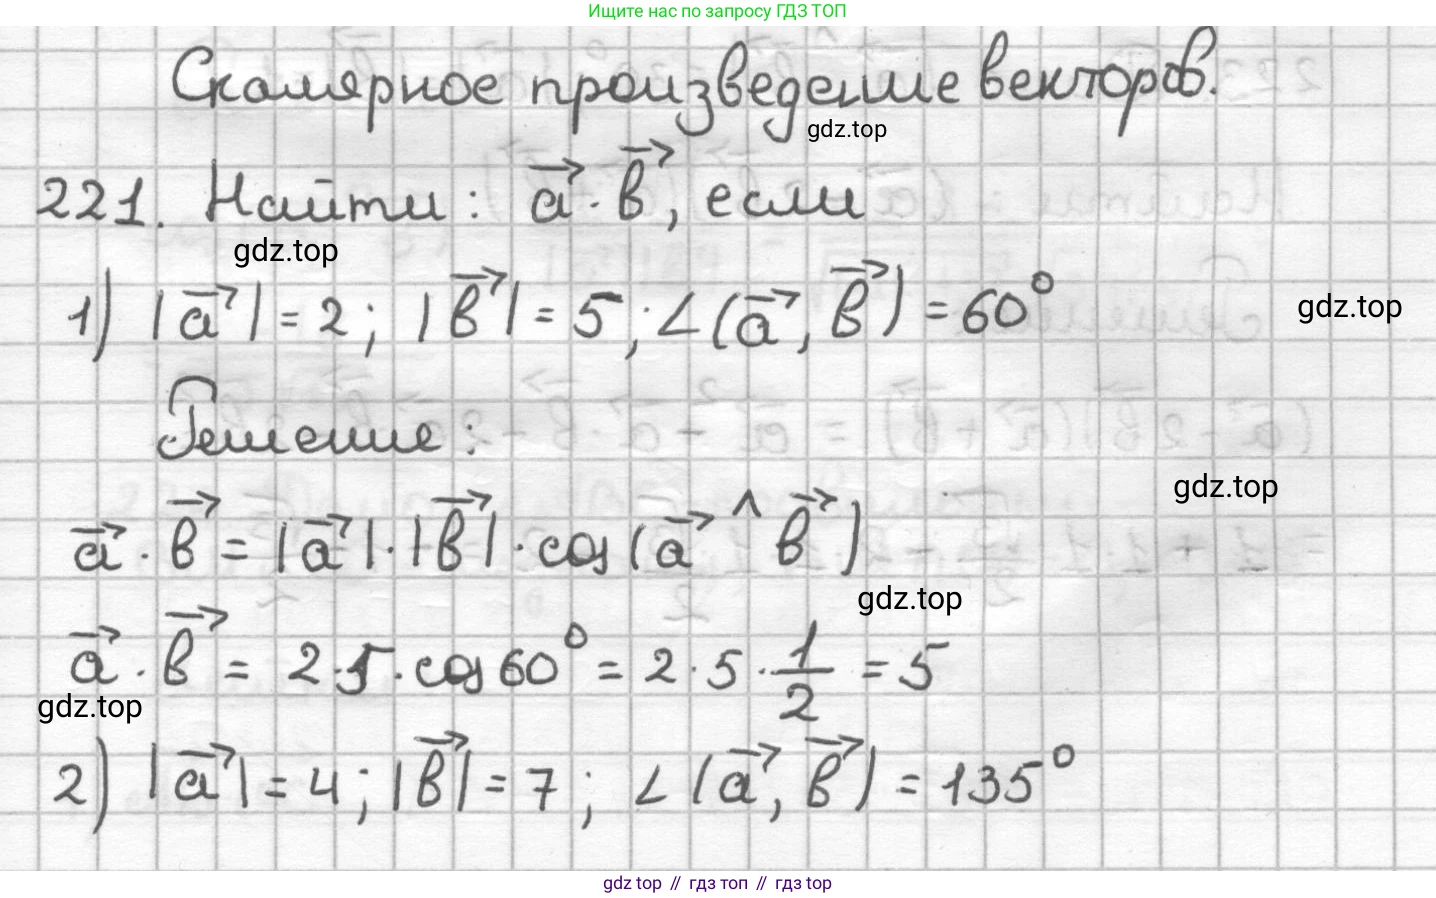 Ищите нас по запросу ГДЗ ТОП
Скалярное произведение векторов.
gdz.top
221. Найти: a⃗ · b⃗, если
gdz.top
1) |a⃗| = 2; |b⃗| = 5; ∠(a⃗, b⃗) = 60°
gdz.top
Решение:
gdz.top
a⃗ · b⃗ = |a⃗| · |b⃗| · cos(a⃗ ^ b⃗)
gdz.top
a⃗ · b⃗ = 2·5 · cos 60° = 2 · 5 · 1/2 = 5
gdz.top
2) |a⃗| = 4; |b⃗| = 7; ∠(a⃗, b⃗) = 135°
gdz top // гдз топ // gdz.top